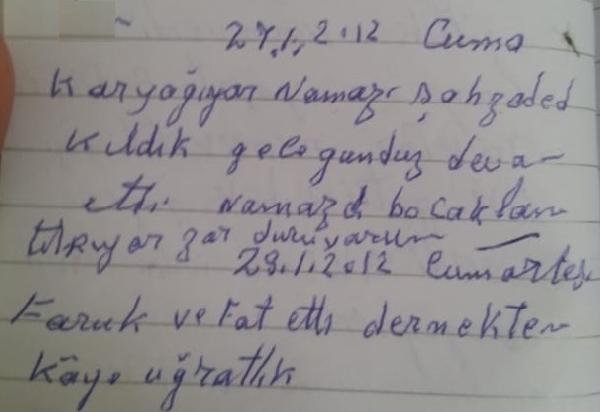 27.1.2012 Cuma
Karyağıyor Namazı Şahzaded
Kıldık gece gunduz deva
etti Namazd bacakları
titriyor zar duruyorum
28.1.2012 Cumartesi
Faruk vefat etti dernekten
Köye uğratlık